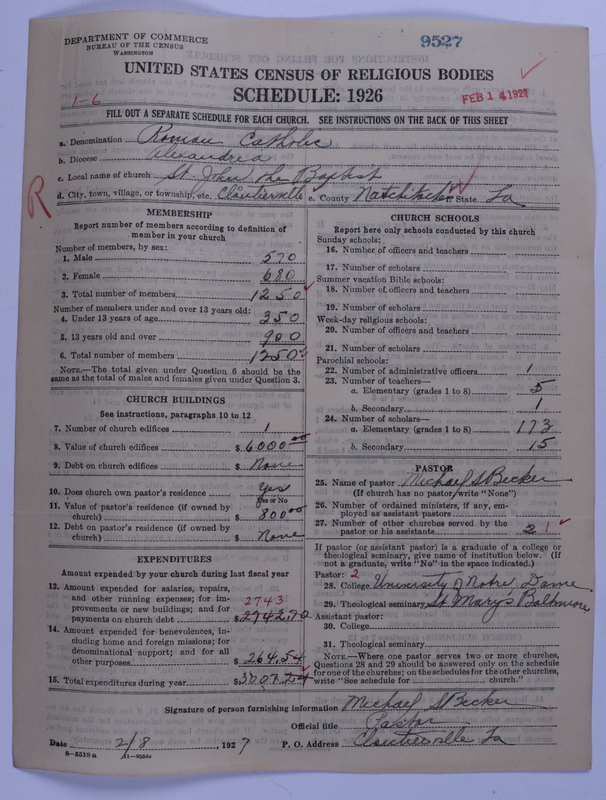 DEPARTMENT OF COMMERCE
BUREAU OF THE CENSUS
WASHINGTON
9527
UNITED STATES CENSUS OF RELIGIOUS BODIES
SCHEDULE: 1926
1-6
FEB 14 1927
FILL OUT A SEPARATE SCHEDULE FOR EACH CHURCH. SEE INSTRUCTIONS ON THE BACK OF THIS SHEET
a. Denomination Roman Catholic
b. Diocese Alexandria
c. Local name of church St John the Baptist
d. City, town, village, or township, etc. Cloutierville e. County Natchitoches State La
R
MEMBERSHIP
Report number of members according to definition of
member in your church
Number of members, by sex:
1. Male 570
2. Female 680
3. Total number of members 1250
Number of members under and over 13 years old:
4. Under 13 years of age 350
5. 13 years old and over 900
6. Total number of members 1250
NOTE.—The total given under Question 6 should be the
same as the total of males and females given under Question 3.
CHURCH BUILDINGS
See instructions, paragraphs 10 to 12
7. Number of church edifices 1
8. Value of church edifices $ 6000 00
9. Debt on church edifices $ None
10. Does church own pastor's residence Yes
Yes or No
11. Value of pastor's residence (if owned by
church) $ 800 00
12. Debt on pastor's residence (if owned by
church) $ None
EXPENDITURES
Amount expended by your church during last fiscal year
13. Amount expended for salaries, repairs,
and other running expenses; for im-
provements or new buildings; and for
payments on church debt 2743
$ 2742.70
14. Amount expended for benevolences, in-
cluding home and foreign missions; for
denominational support; and for all
other purposes $ 264.54
15. Total expenditures during year $ 3007.24
CHURCH SCHOOLS
Report here only schools conducted by this church
Sunday schools:
16. Number of officers and teachers
17. Number of scholars
Summer vacation Bible schools:
18. Number of officers and teachers
19. Number of scholars
Week-day religious schools:
20. Number of officers and teachers
21. Number of scholars
Parochial schools:
22. Number of administrative officers 1
23. Number of teachers—
a. Elementary (grades 1 to 8) 5
b. Secondary 1
24. Number of scholars—
a. Elementary (grades 1 to 8) 173
b. Secondary 15
PASTOR
25. Name of pastor Michael S Becker
(If church has no pastor, write "None")
26. Number of ordained ministers, if any, em-
ployed as assistant pastors
27. Number of other churches served by the
pastor or his assistants 2 1
If pastor (or assistant pastor) is a graduate of a college or
theological seminary, give name of institution below. (If
not a graduate, write "No" in the space indicated.)
Pastor: 2
28. College University of Notre Dame
29. Theological seminary St Mary's Baltimore
Assistant pastor:
30. College
31. Theological seminary
NOTE.—Where one pastor serves two or more churches,
Questions 28 and 29 should be answered only on the schedule
for one of the churches; on the schedules for the other churches,
write "See schedule for church."
Signature of person furnishing information Michael S Becker
Official title Pastor
Date 2/8, 1927 P. O. Address Cloutierville La
8-5518 a 11-9054